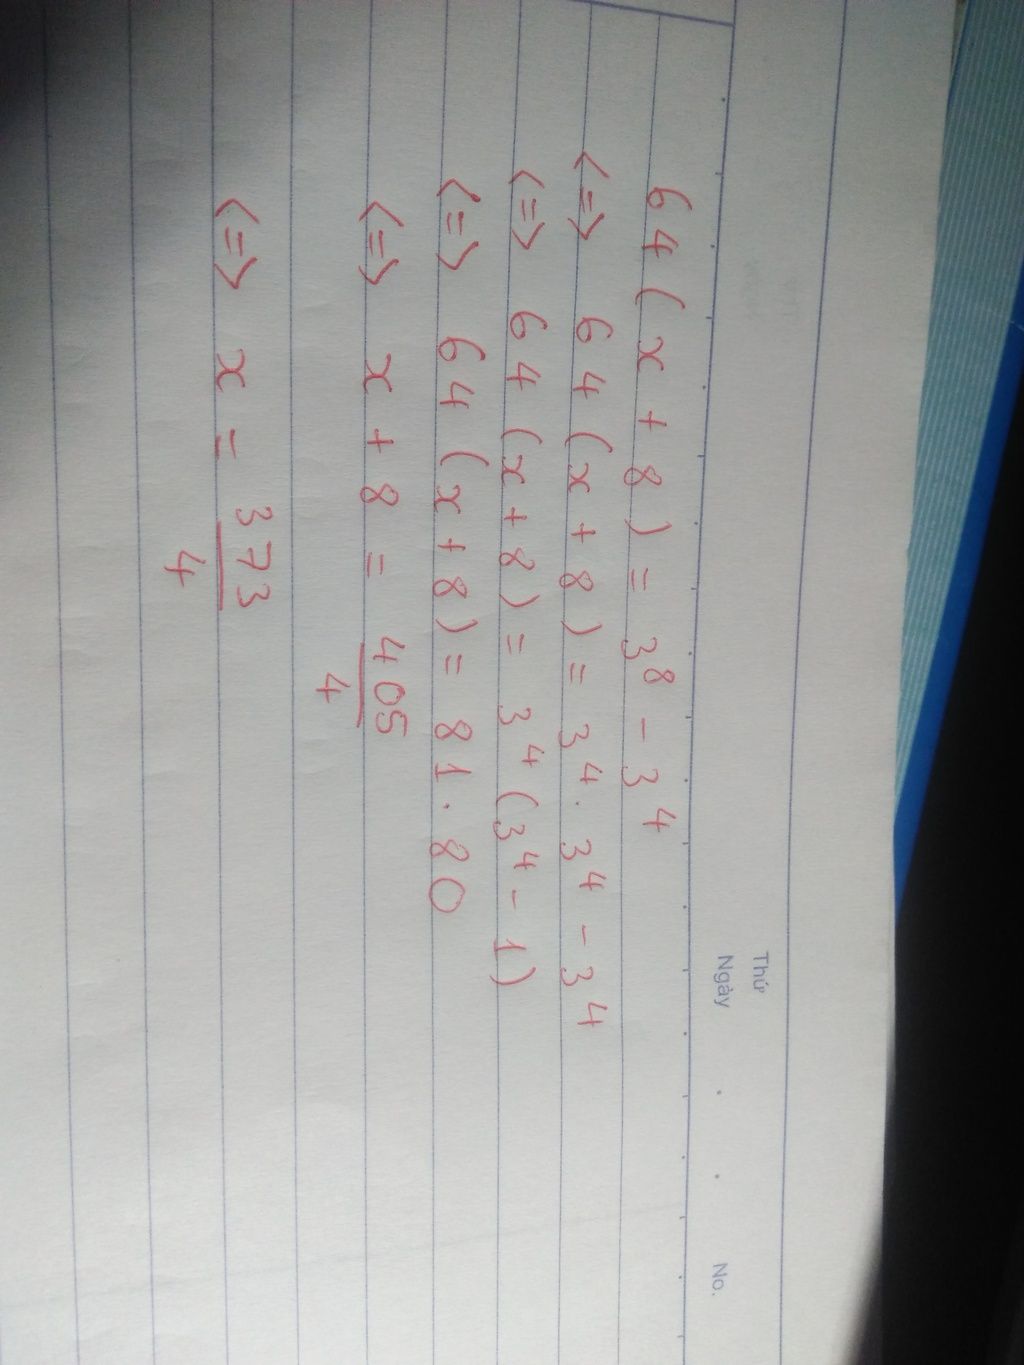 Thứ
Ngày . . No.
64(x+8) = 3⁸ - 3⁴
<=> 64(x+8) = 3⁴ . 3⁴ - 3⁴
<=> 64(x+8) = 3⁴(3⁴ - 1)
<=> 64(x+8) = 81 . 80
<=> x + 8 = 405/4
<=> x = 373/4